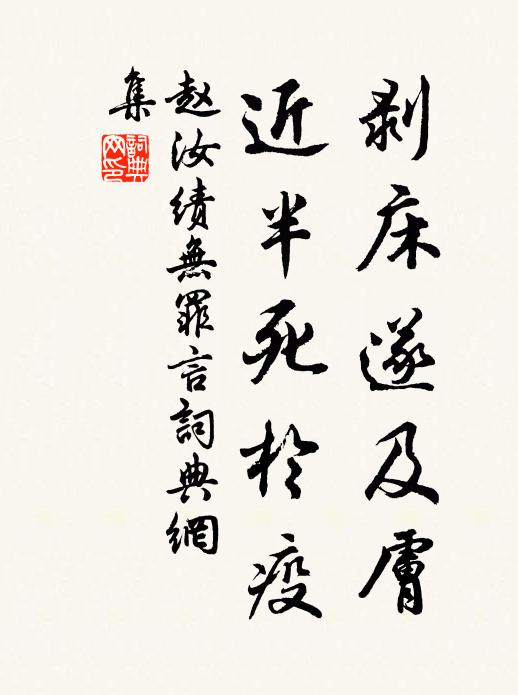 剥床遂及膚
近半死於疫
赵汝績無罪言詞典網
集
詞典
网印